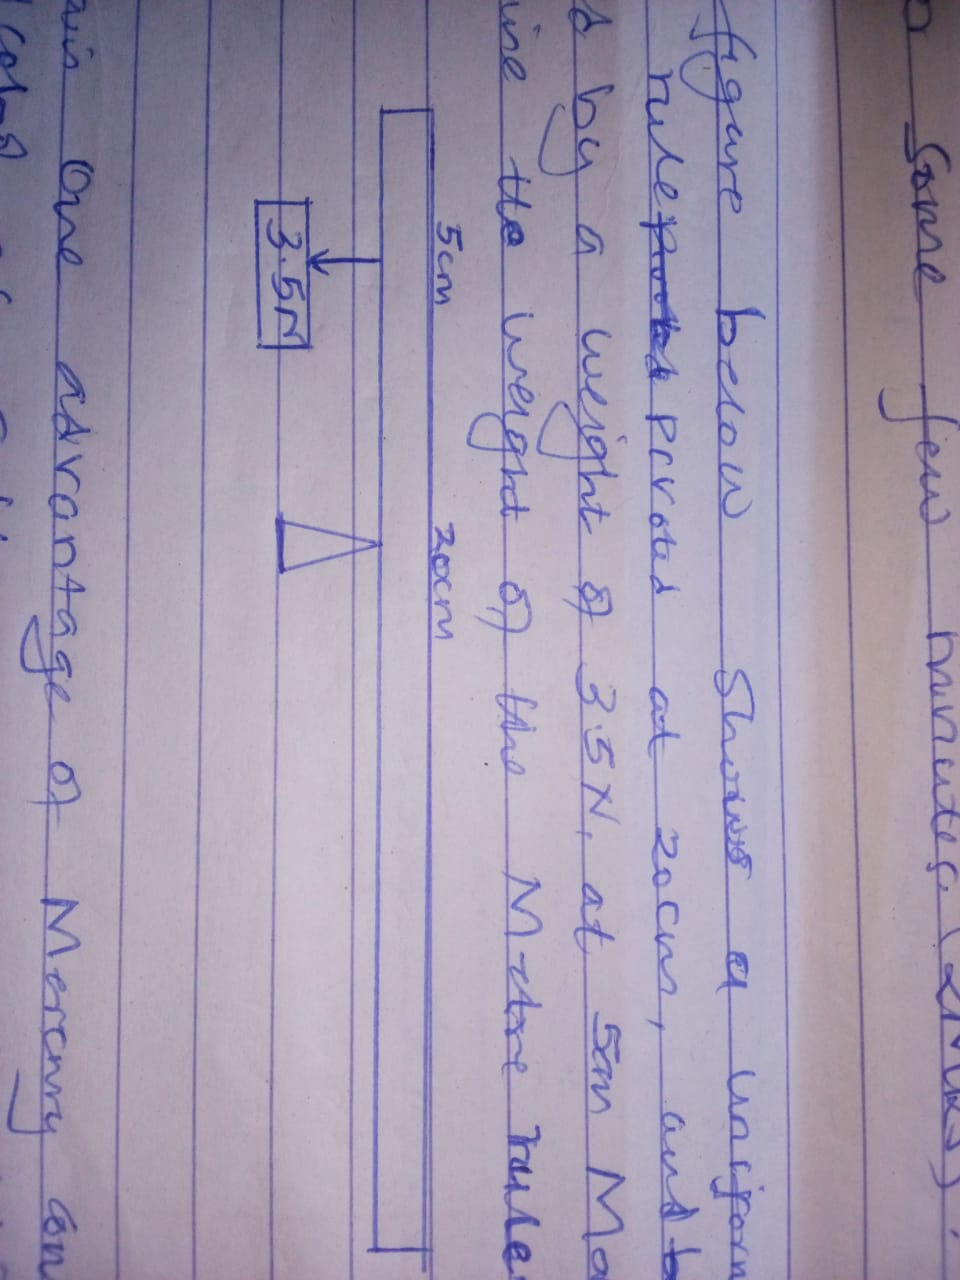 Some few minutes. (2MKS).
figure below shows a uniform
rule pivoted at 20cm, and b
d by a weight of 3.5N, at 5cm Ma
ine the weight of the Metre rule
5cm 20cm
3.5N
ain One advantage of Mercury on